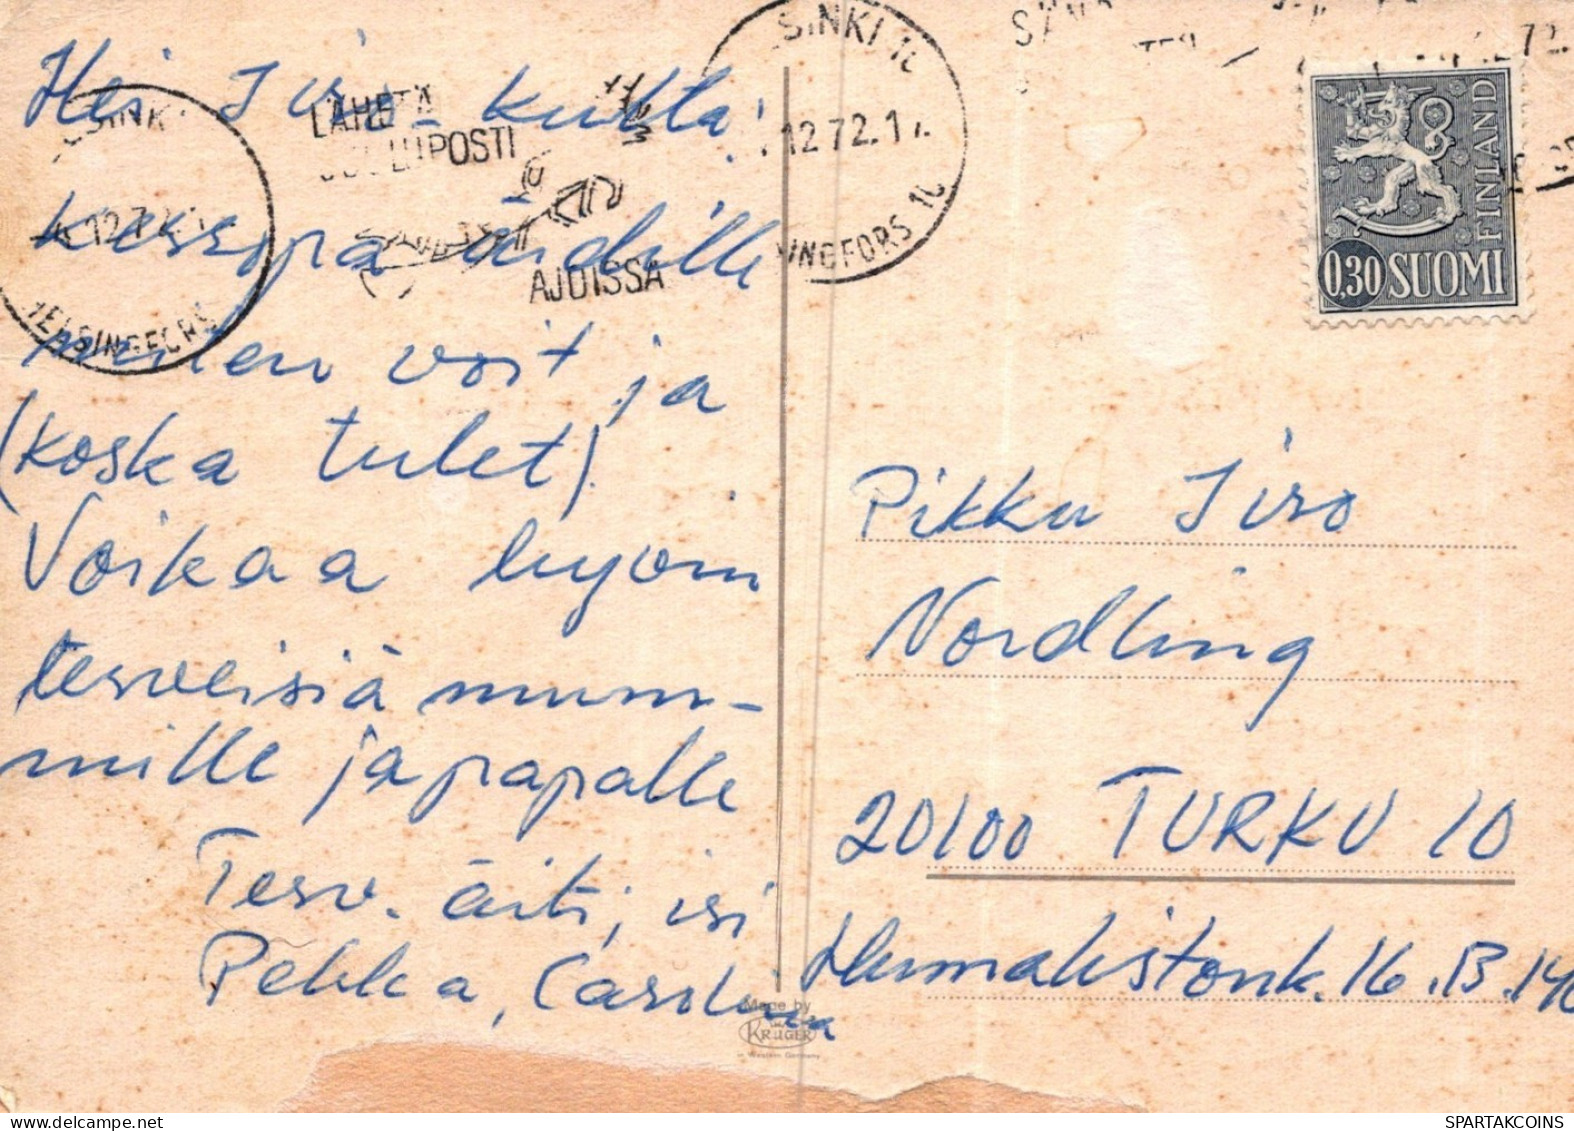 Hei Iiro-kulta!
kerropa äidille
miten voit ja
(koska tulet).
Voikaa hyvin
terveisiä mum-
mille ja papalle
Terv. äiti, isi
Pekka, Carolina
LÄHETÄ
JOULUPOSTI
AJOISSA
HELSINGFORS
SINKI 10
.12.72.17
INGFORS 10
0,30 SUOMI
FINLAND
Pikku Iiro
Nordling
20100 TURKU 10
Humalistonk. 16.B.
Made by
KRÜGER
in Western Germany
SPARTAKCOINS